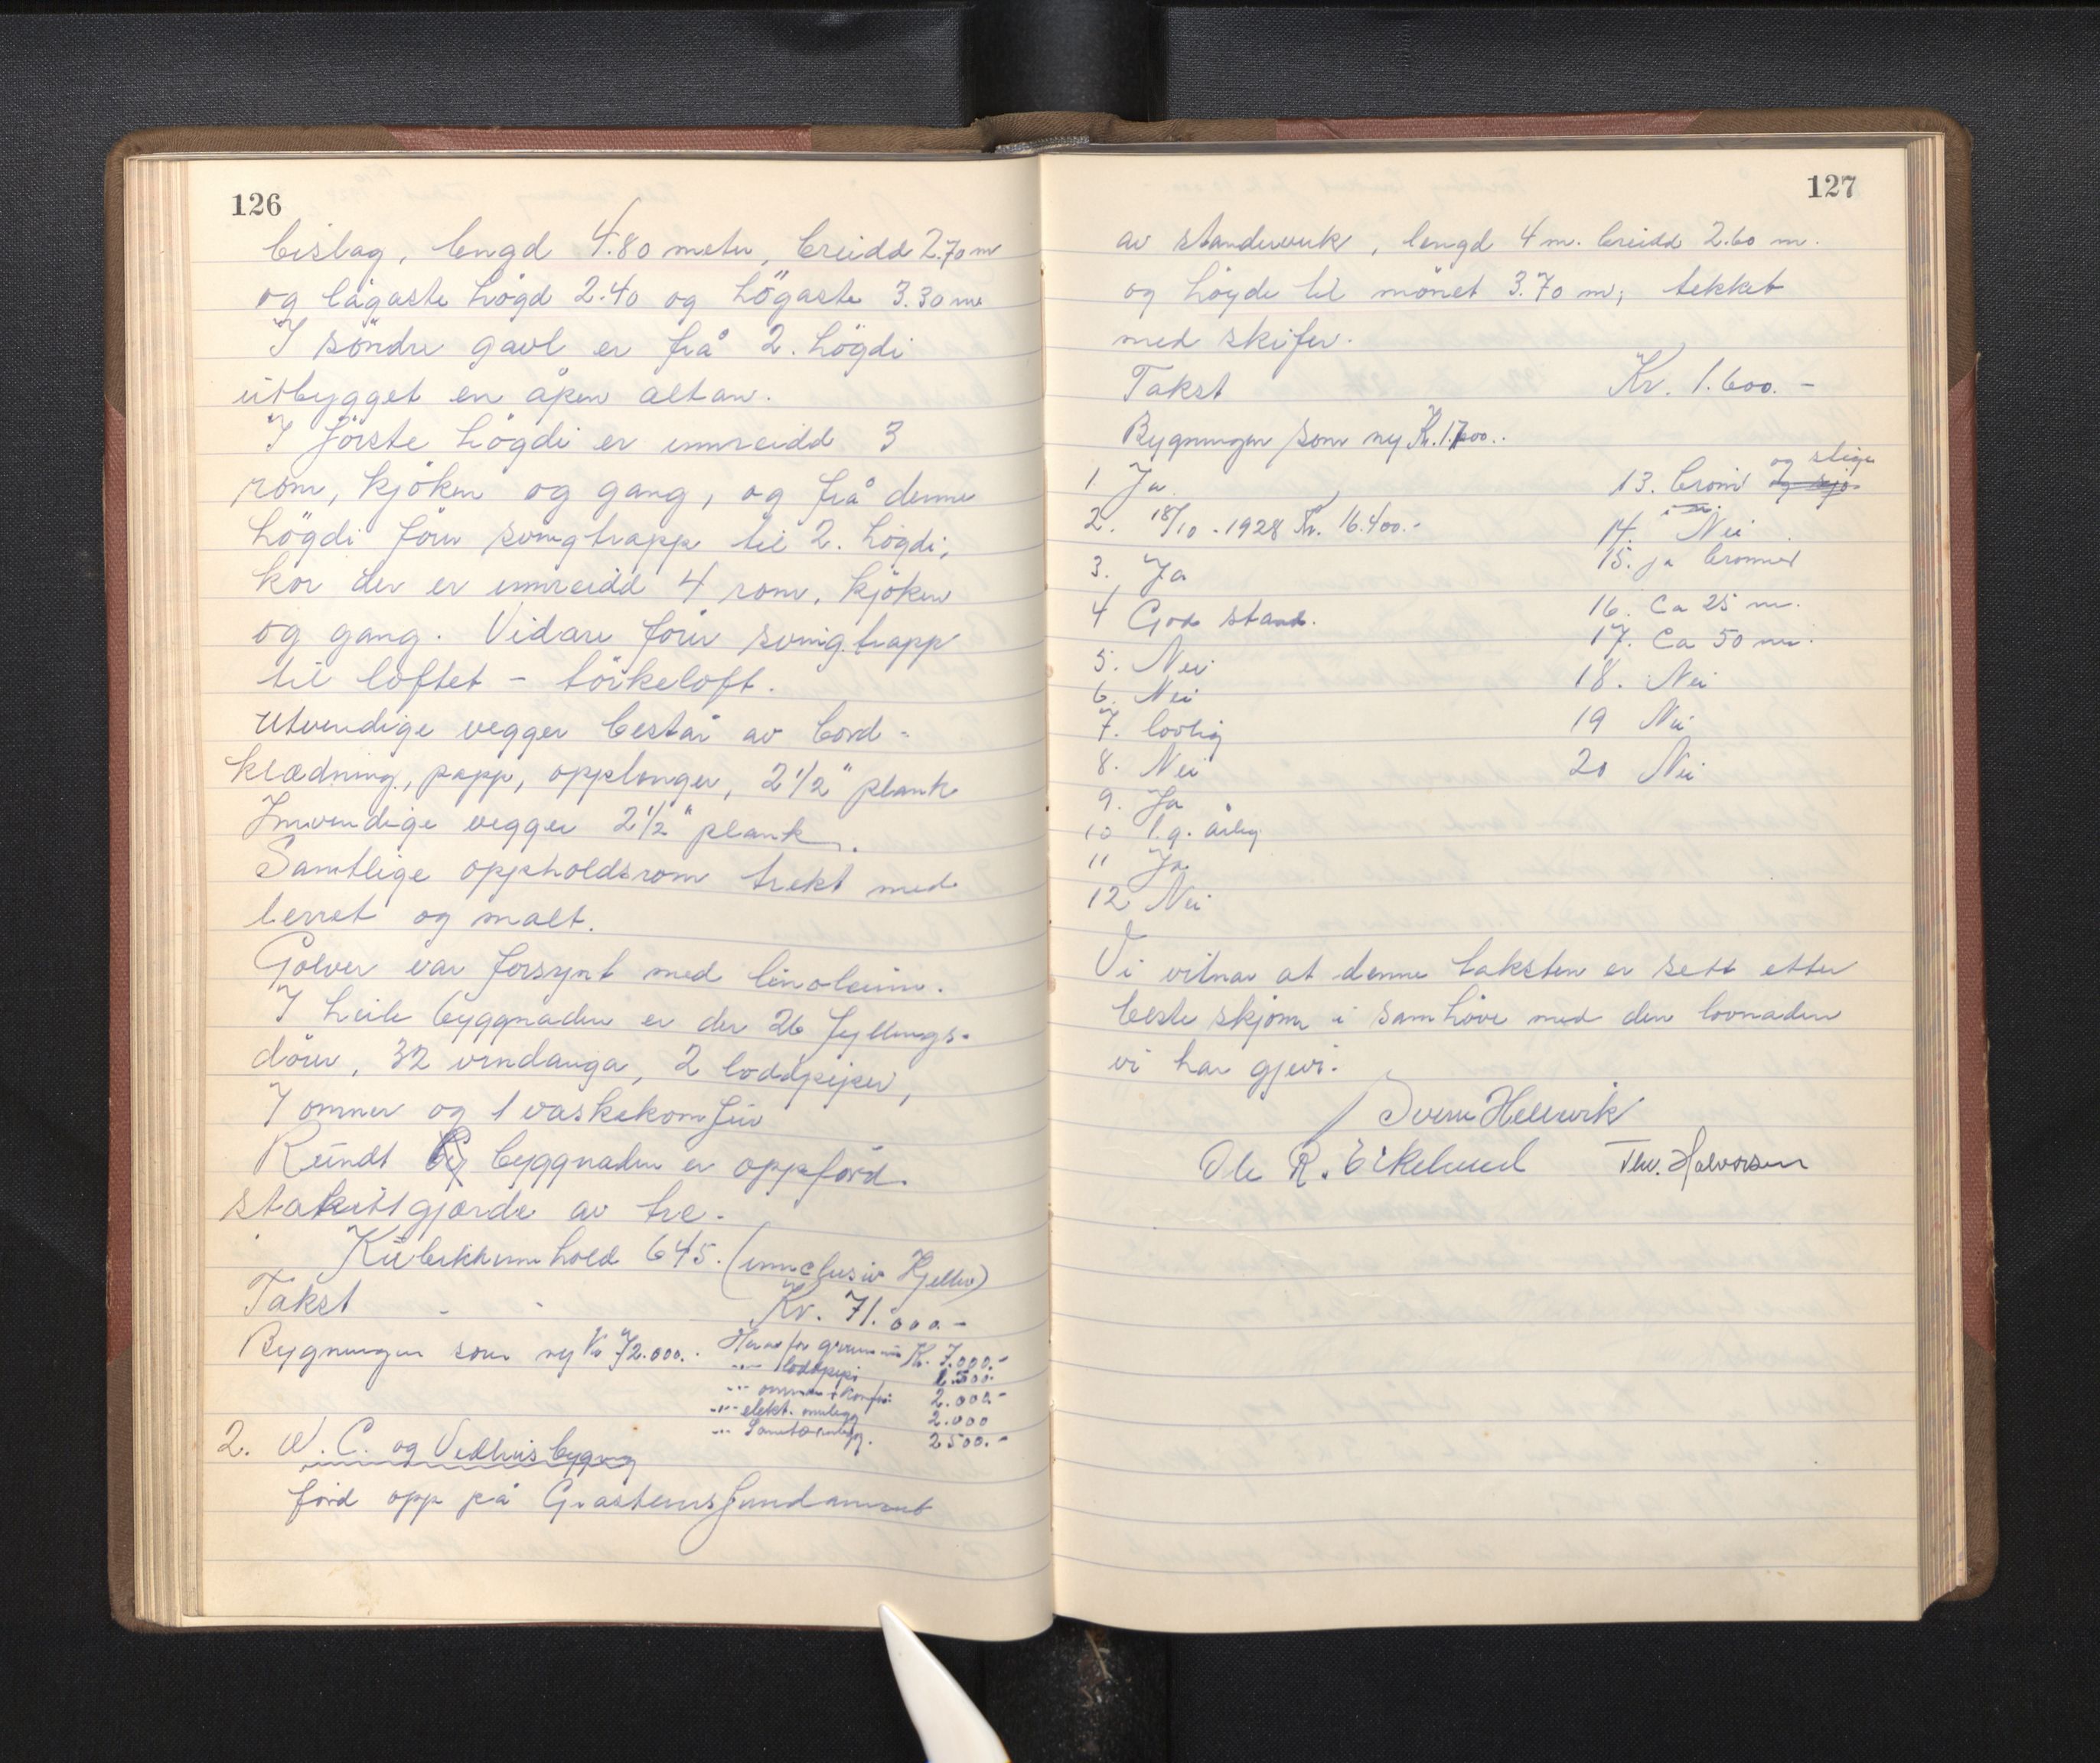 126
bislag, lengd 4.80 meter, breidd 2.70 m
og lågaste högd 2.40 og högaste 3.30 m
I söndre gavl er frå 2. högdi
utbygget en åpen altan.
I förste högdi er innreidd 3
rom, kjöken og gang, og frå denne
högdi förer svingtrapp til 2. högdi,
kor der er innreidd 4 rom, kjöken
og gang. Vidare förer svingtrapp
til loftet - törkeloft.
Utvendige vegger består av bord-
klædning, papp, opplenger, 2 1/2" plank
Innvendige vegger 2 1/2" plank.
Samtlige oppholdsrom trekt med
lerret og malt.
Golver var forsynt med linoleum.
I heile byggnaden er der 26 fyllings-
dörer, 32 vindauga, 2 loddpiper,
7 omner og 1 vaskekomfur
Rundt by byggnaden er oppförd
stakittgjærde av tre.
Kubikkinnhold 645. (innclusiv Kjeller)
Takst - - Kr. 71.000.-
Bygningen som ny Kr 72.000.
Herav for grunnmur Kr. 7.000.-
-"- loddpipe 1.500.
-"- omner + komfur 2.000.-
-"- elekt. innlegg 2.000
-"- Sanitæranlegg. 2500.-
2. W.C. og Vedhusbygng
förd opp på Gråsteinsfundament
127
av standerverk, lengd 4 m. breidd 2.60 m.
og höyde til mönet 3.70 m; tekket
med skifer.
Takst Kr. 1.600.-
Bygningen som ny Kr. 1.700..
1. Ja 13. brönn og stige
2. 18/10 - 1928 Kr. 16.400.- 14. Nei
3. Ja 15. ja brönner
4 God stand. 16. Ca 25 m.
5. Nei 17. Ca 50 m.
6. Nei 18. Nei
7. lovlig 19 Nei
8. Nei 20 Nei
9. Ja
10 1.g. årleg
11 Ja
12 Nei
Vi vitnar at denne taksten er sett etter
beste skjönn i samhöve med den lovnaden
vi har gjevi.
Sverre Hellevik
Ole R. Eikelund Thv. Halvorsen